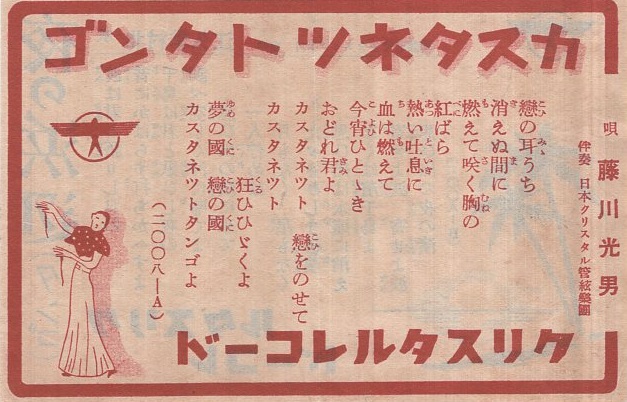 カスタネツトタンゴ
唄 藤川光男
伴奏 日本クリスタル管絃樂團
戀の耳うち
消えぬ間に
燃えて咲く胸の
紅ばら
熱い吐息に
血は燃えて
今宵ひとゝき
おどれ君よ
カスタネツト 戀をのせて
カスタネツト
狂ひひゞくよ
夢の國 戀の國
カスタネツトタンゴよ
(二〇〇八―A)
クリスタルレコード